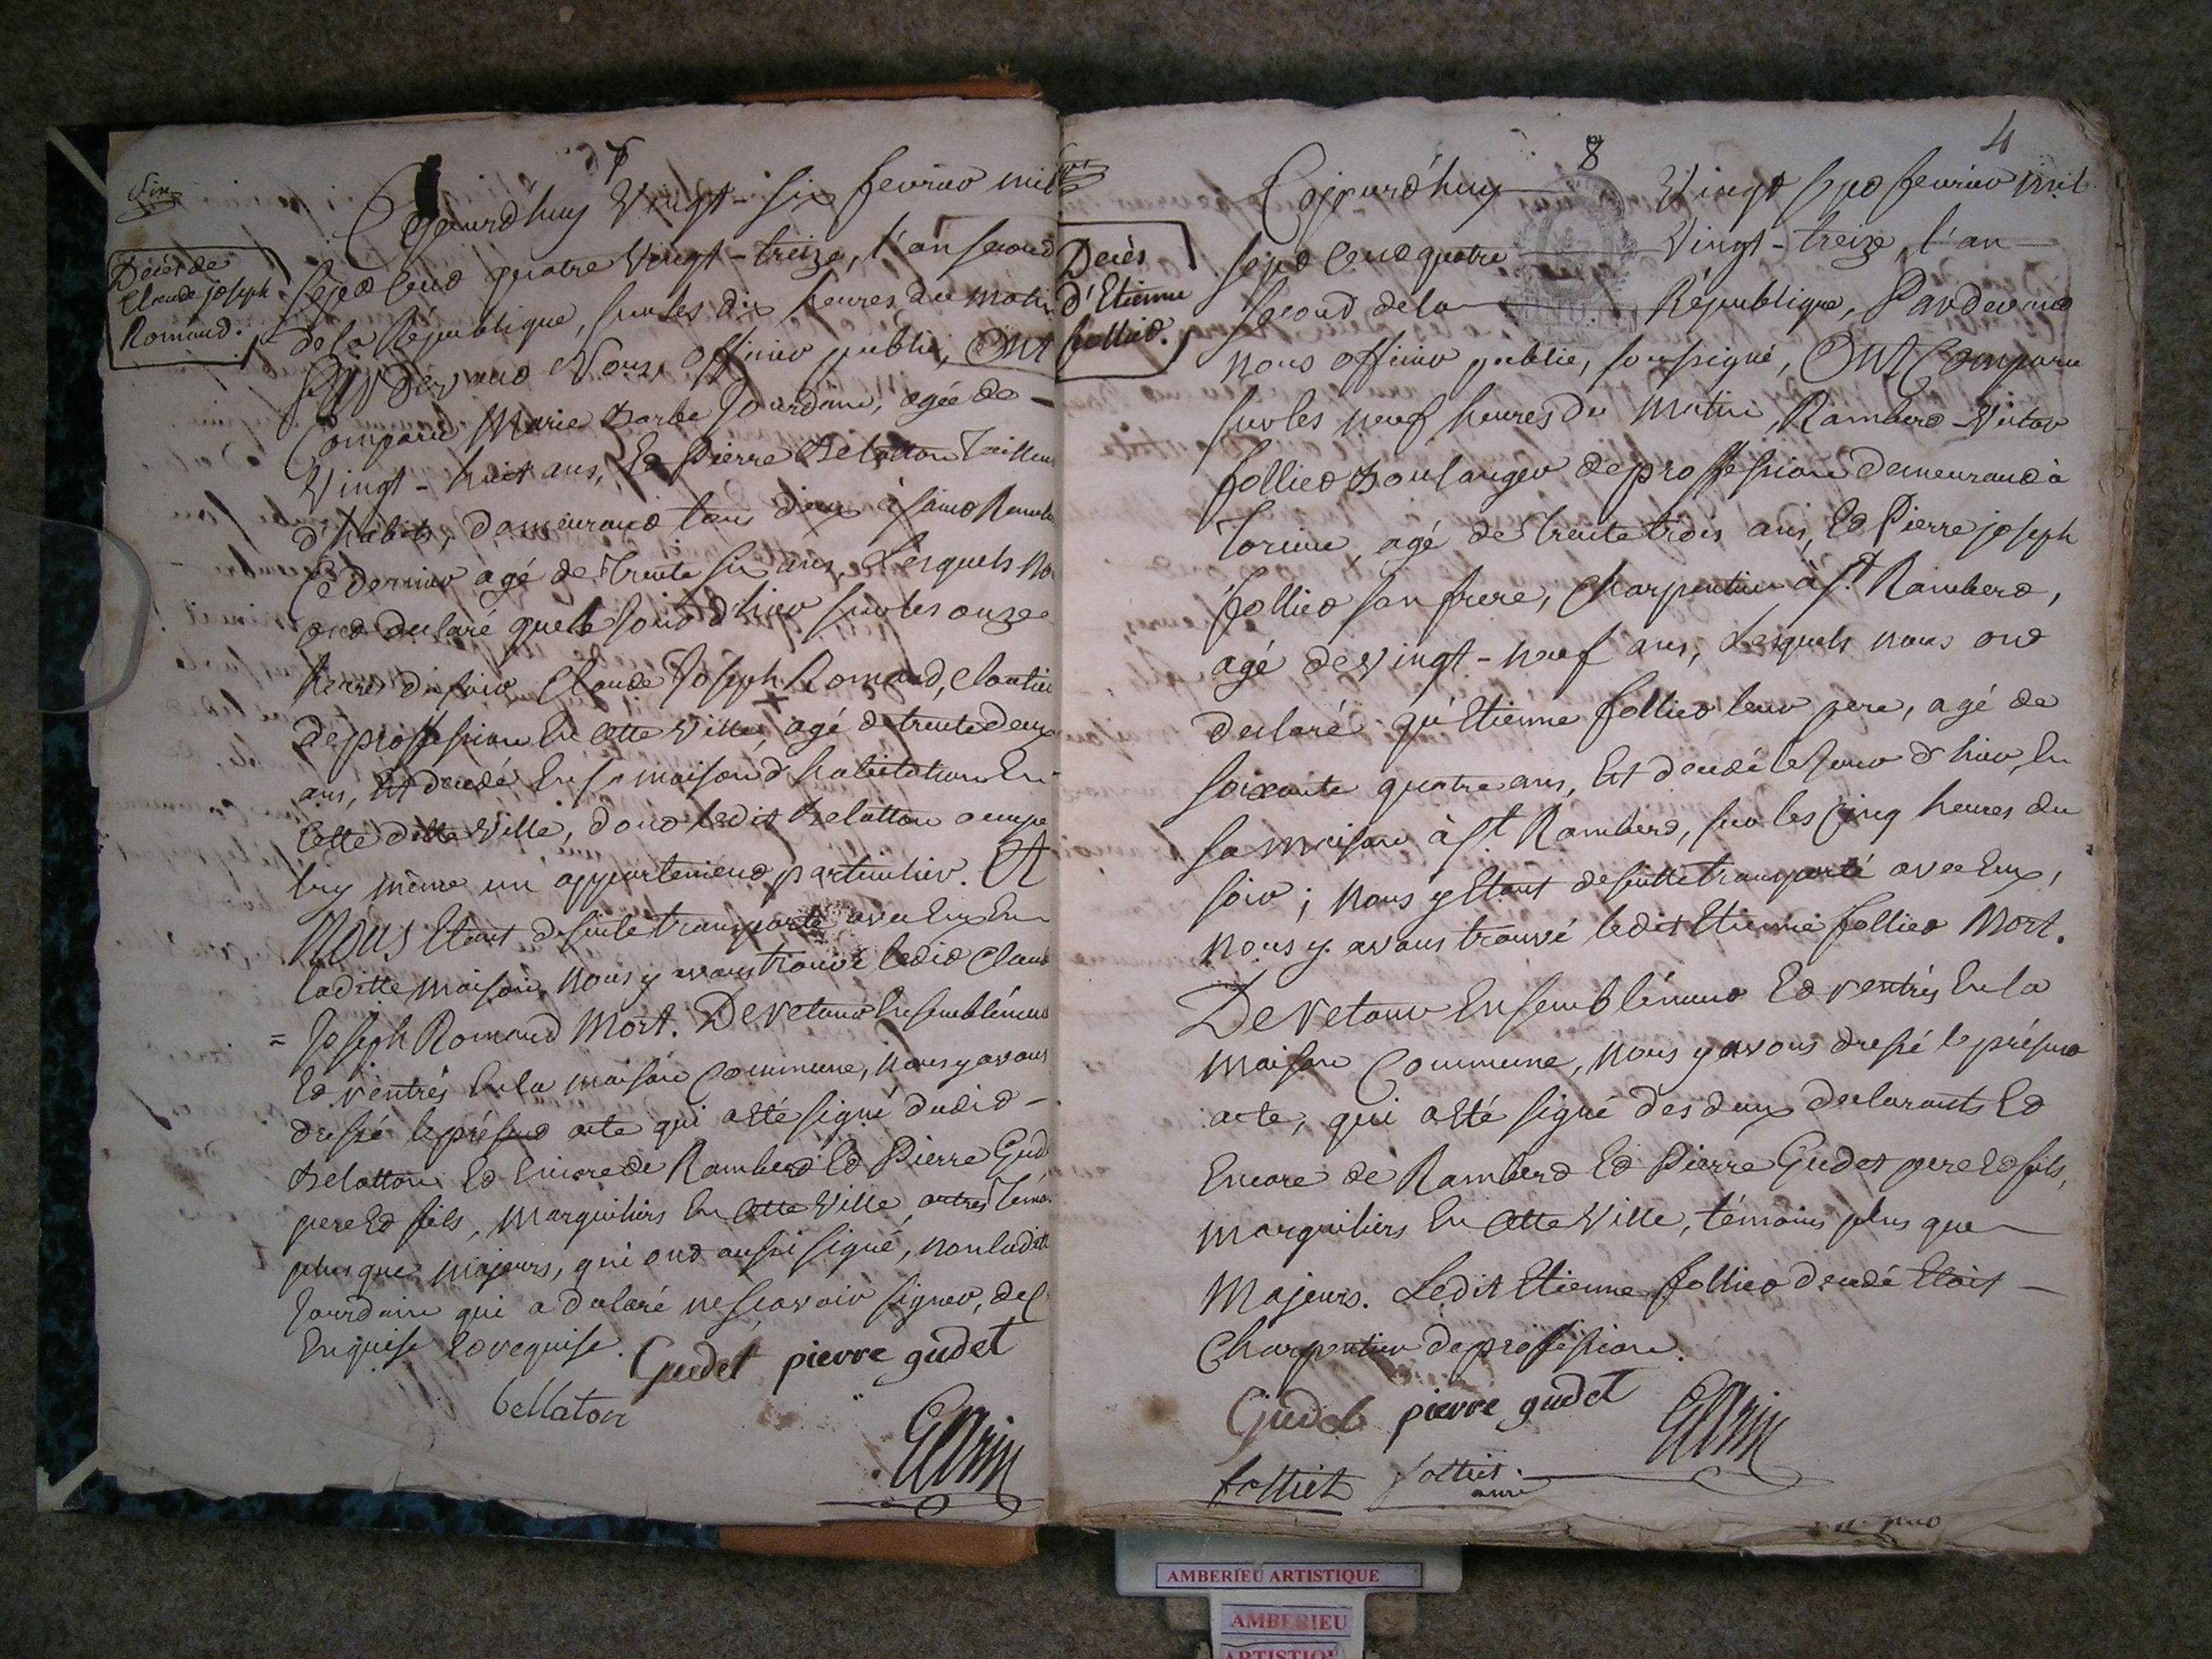 7
Six
Décès de
Claude joseph
Romand.
Cejourd'huy Vingt-six fevrier mil
sept cent quatre Vingt-treize, l'an second
de la République, sur les dix heures du matin
PARDevant Nous, officier public, Ont
Comparu Marie Barbe Jourdain, agée de -
Vingt-huit ans, Et Pierre Belatton Tailleur
d'habits, demeurant tous deux à saint Ramb
Ce dernier agé de Trente six ans, Lesquels no
ont declaré que le jour d'hier sur les onze
heures du soir Claude Joseph Romand, cloutier
de profession En Cette Ville, agé de trente deux
ans, Est decedé En sa maison d'habitation En
Cette ditte Ville, dont ledit Belatton occupe
luy même un appartement particulier. Et
NOUS Etant de suite transporté avec Eux En
laditte maison, nous y avons trouvé ledit Claud
= Joseph Romand Mort. De retour Ensemblément
Et rentrés En la maison Commune, nous y avons
dressé le présent acte qui a Eté signé dudit -
Belatton Et Encore de Rambert Et Pierre Gud
pere Et fils, marguiliers En Cette Ville, autres Témo
plus que majeurs, qui ont aussi signé, non ladite
Jourdain qui a declaré ne sçavoir signer, de
Enquise Et requise.
Gudet pierre gudet
bellaton
4
8
Sept
Décès
d'Etienne
folliet.
Cejourd'huy Vingt sept fevrier mil
sept cent quatre Vingt-treize, l'an
second de la République, Pardevant
nous officier public, soussigné, Ont Comparu
sur les neuf heures du matin, Rambert-Victor
folliet Boulanger de profession demeurant à
Torcieu, agé de trente trois ans, Et Pierre joseph
folliet son frere, Charpentier à St. Rambert,
agé de Vingt-neuf ans, Lesquels nous ont
declaré qu'Etienne folliet leur pere, agé de
soixante quatre ans, Est decedé le jour d'hier, En
sa maison à St. Rambert, sur les Cinq heures du
soir; nous y Etant de suitte transporté avec Eux,
nous y avons trouvé ledit Etienne folliet Mort.
De retour Ensemblément Et rentrés En la
maison Commune, nous y avons dressé le présent
acte, qui a Eté signé des deux declarants Et
Encore de Rambert Et Pierre Gudet pere Et fils,
marguiliers En Cette Ville, témoins plus que
Majeurs. Ledit Etienne folliet decedé Etoit -
Charpentier de profession.
Gudet pierre gudet
folliet folliet
ainé
AMBERIEU ARTISTIQUE
AMBERIEU
ARTISTIQU